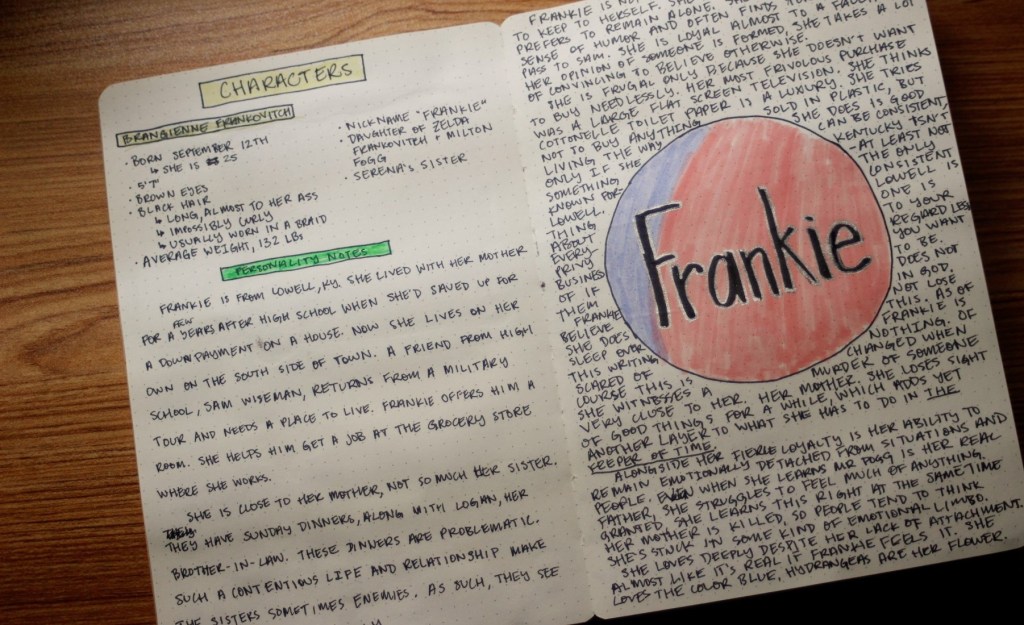 CHARACTERS
BRANGIENNE FRANKOVITCH
· BORN SEPTEMBER 12TH
↳ SHE IS 25
· 5'7"
· BROWN EYES
· BLACK HAIR
↳ LONG, ALMOST TO HER ASS
↳ IMPOSSIBLY CURLY
↳ USUALLY WORN IN A BRAID
· AVERAGE WEIGHT, 132 LBS
· NICKNAME "FRANKIE"
· DAUGHTER OF ZELDA
FRANKOVITCH & MILTON
FOGG
· SERENA'S SISTER
PERSONALITY NOTES
FRANKIE IS FROM LOWELL, KY. SHE LIVED WITH HER MOTHER
FOR A FEW YEARS AFTER HIGH SCHOOL WHEN SHE'D SAVED UP FOR
A DOWNPAYMENT ON A HOUSE. NOW SHE LIVES ON HER
OWN ON THE SOUTH SIDE OF TOWN. A FRIEND FROM HIGH
SCHOOL, SAM WISEMAN, RETURNS FROM A MILITARY
TOUR AND NEEDS A PLACE TO LIVE. FRANKIE OFFERS HIM A
ROOM. SHE HELPS HIM GET A JOB AT THE GROCERY STORE
WHERE SHE WORKS.
SHE IS CLOSE TO HER MOTHER, NOT SO MUCH HER SISTER.
THEY HAVE SUNDAY DINNERS, ALONG WITH LOGAN, HER
BROTHER-IN-LAW. THESE DINNERS ARE PROBLEMATIC.
SUCH A CONTENTIOUS LIFE AND RELATIONSHIP MAKE
THE SISTERS SOMETIMES ENEMIES. AS SUCH, THEY SEE
FRANKIE IS
TO KEEP TO HERSELF. SHE
PREFERS TO REMAIN ALONE.
SENSE OF HUMOR AND OFTEN FINDS
PASS TO SAM. SHE IS LOYAL ALMOST TO A
HER OPINION OF SOMEONE IS FORMED, SHE TAKES A LOT
OF CONVINCING TO BELIEVE OTHERWISE.
SHE IS FRUGAL ONLY BECAUSE SHE DOESN'T WANT
TO BUY NEEDLESSLY. HER MOST FRIVOLOUS PURCHASE
WAS A LARGE FLAT SCREEN TELEVISION. SHE THINKS
COTTONELLE TOILET PAPER IS A LUXURY. SHE TRIES
NOT TO BUY ANYTHING SOLD IN PLASTIC, BUT
LIVING THE WAY SHE DOES IS GOOD
ONLY IF SHE CAN BE CONSISTENT,
SOMETHING KENTUCKY ISN'T
KNOWN FOR -AT LEAST NOT
LOWELL. THE ONLY
THING CONSISTENT
ABOUT LOWELL IS
EVERY ONE IS
PRIVY TO YOUR
BUSINESS REGARDLESS
OF IF YOU WANT
THEM TO BE.
FRANKIE DOES NOT
BELIEVE IN GOD.
SHE DOES NOT LOSE
SLEEP OVER THIS. AS OF
THIS WRITING FRANKIE IS
SCARED OF NOTHING. OF
COURSE THIS IS CHANGED WHEN
SHE WITNESSES A MURDER OF SOMEONE
VERY CLOSE TO HER. HER MOTHER. SHE LOSES SIGHT
OF GOOD THINGS FOR A WHILE, WHICH ADDS YET
ANOTHER LAYER TO WHAT SHE HAS TO DO IN THE
KEEPER OF TIME.
ALONGSIDE HER FIERCE LOYALTY IS HER ABILITY TO
REMAIN EMOTIONALLY DETACHED FROM SITUATIONS AND
PEOPLE. EVEN WHEN SHE LEARNS MR FOGG IS HER REAL
FATHER, SHE STRUGGLES TO FEEL MUCH OF ANYTHING.
GRANTED, SHE LEARNS THIS RIGHT AT THE SAME TIME
HER MOTHER IS KILLED, SO PEOPLE TEND TO THINK
SHE'S STUCK IN SOME KIND OF EMOTIONAL LIMBO.
SHE LOVES DEEPLY DESPITE HER LACK OF ATTACHMENT.
ALMOST LIKE IT'S REAL IF FRANKIE FEELS IT. SHE
LOVES THE COLOR BLUE, HYDRANGEAS ARE HER FLOWER.
Frankie